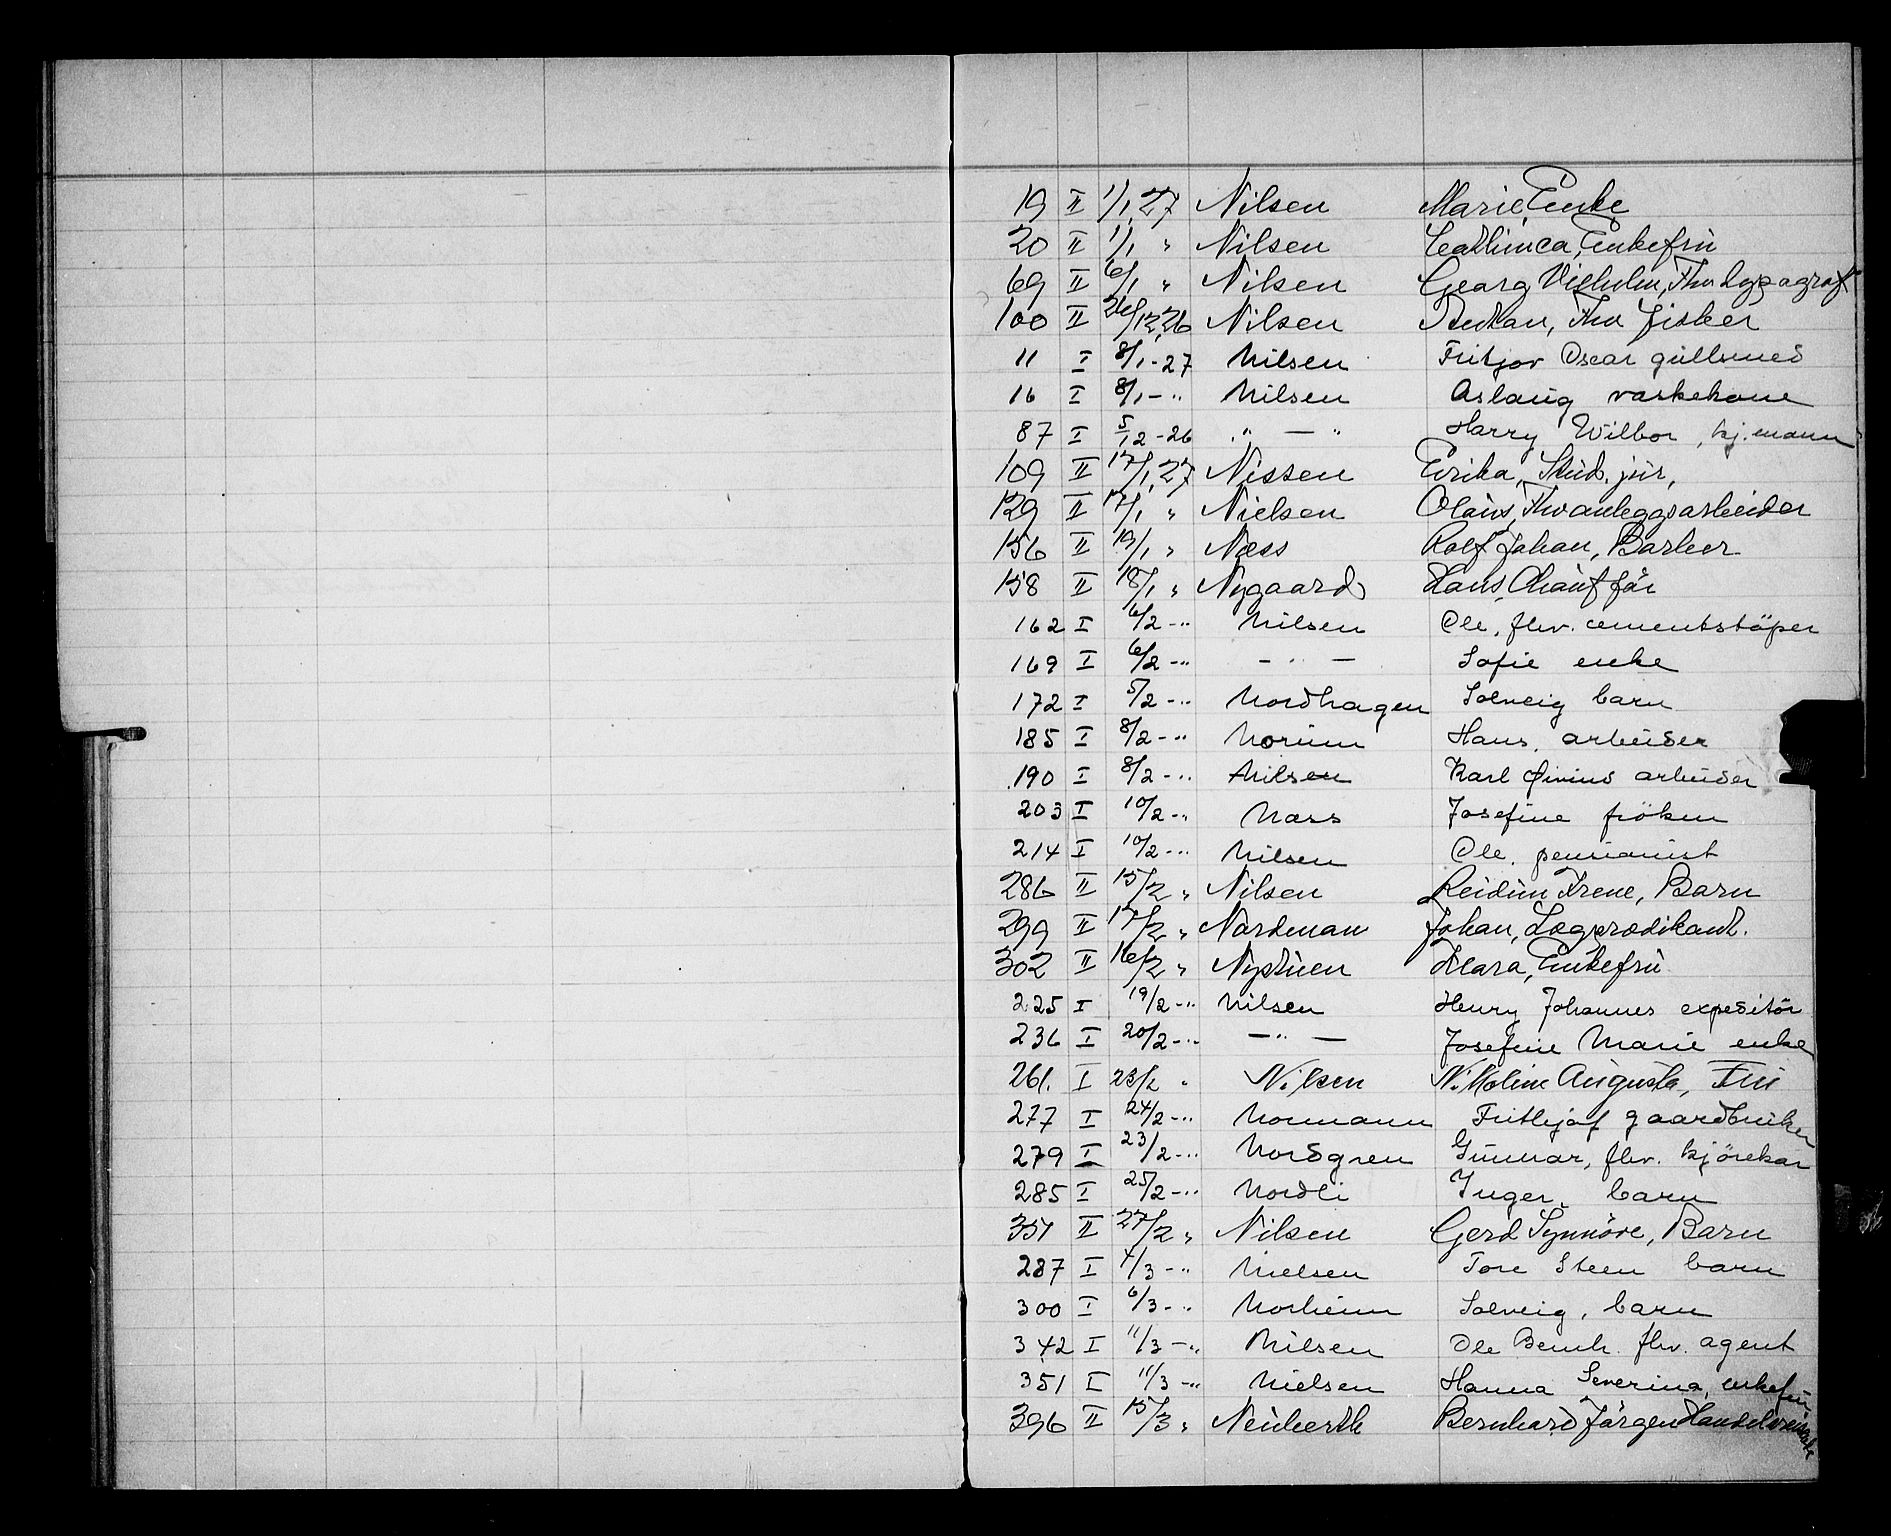 19 II 1/1 27 Nilsen Marie, Enke
20 II 1/1 " Nilsen Cathinca, Enkefrú
69 II 6/1 " Nilsen Georg Vilhelm, Fhv. typograf
100 II 26/12,26 Nilsen Fhv. fisker
11 I 8/1-27 Nilsen Fritjov Oscar gúllsmed
16 I 8/1-" Nilsen Aslaúg vaskekone
87 I 5/12-26 "—" Harry Wilbor, kj.mann
109 II 17/1,27 Nissen Erika, Stúd. júr,
129 II 17/1 " Nielsen Olaús, Fhv anleggsarbeider
156 II 19/1 " Næss Rolf Johan, Barber
158 II 18/1 " Nygaard Hans, Chaúffør
162 I 6/2-" Nilsen Ole, fhv. cementstöper
169 I 6/2-" —"— Sofie enke
172 I 5/2-" Nordhagen Solveig barn
185 I 8/2-" Norúm Hans, arbeider
190 I 8/2-" Nilsen Karl Øivind arbeider
203 I 10/2-" Næss Josefine fröken
214 I 10/2-" Nilsen Ole, pensionist
286 II 15/2 " Nilsen Reidún Irene, Barn
299 II 17/2 " Nordman Johan, Lægprædikant.
302 II 16/2 " Nystúen Klara, Enkefrú
225 I 19/2-" Nilsen Henry Johannes expeditör
236 I 20/2-" —"— Josefine Marie enke
261. I 23/2 " Nilsen Nikoline Aúgusta, Frú
277 I 24/2-" Normann Frithjof gaardbrúker
279 I 23/2-" Nordgren Gúnnar, fhv. kjörekar
285 I 25/2-" Nordli Inger, barn
351 II 27/2 " Nilsen Gerd Synnöve, Barn
287 I 4/3-" Nielsen Tore Steen barn
300 I 6/3-" Norheim Solveig, barn
342 I 11/3-" Nilsen Ole Bernh. fhv. agent
351 I 11/3-" Nielsen Hanna Severina, enkefrú
396 II 15/3 " Neúberth Bernhard Jörgen